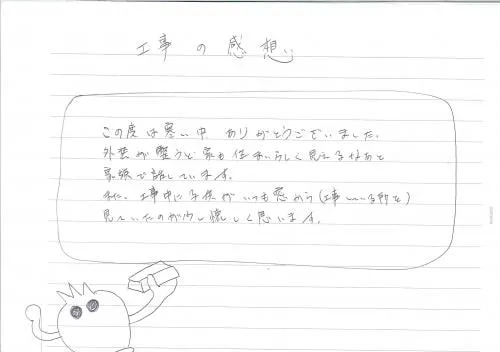 工事の感想
この度は寒い中、ありがとうございました。
外壁が整うと家も住まいらしく見えるなあと
家族で話しています。
又、工事中に子供がいつも窓から(工事している所を)
見ていたのが少し懐しく思います。